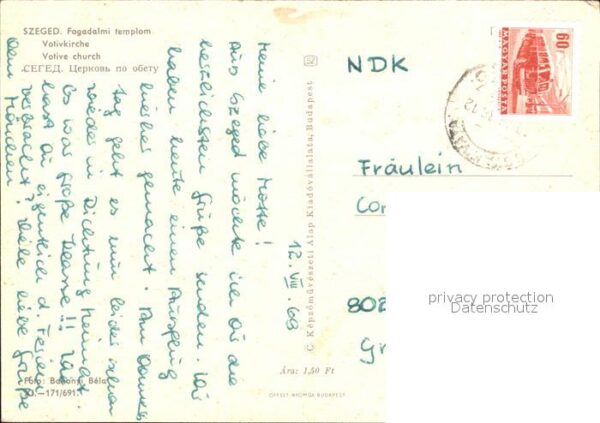 SZEGED. Fogadalmi templom
Votivkirche
Votive church
СЕГЕД. Церковь по обету
12. VIII. 69
Meine liebe Motte!
Aus Szeged möchte ich Dir die
herzlichsten Grüße senden. Wir
haben heute einen Ausflug
hierher gemacht. Am Donners
tag geht es nun leider schon
wieder in Richtung Heimat.
Es war große Klasse!! Wie
hast Du eigentlich d. Ferien
verbracht? Viele liebe Grüße
Dein
Foto: Bakonyi Béla
-171/691
C Képzőművészeti Alap Kiadóvállalata, Budapest
Ára: 1,50 Ft
OFFSET-NYOMDA BUDAPEST
60 f
MAGYAR POSTA
NDK
Fräulein
Cor
802
Gr
privacy protection
Datenschutz